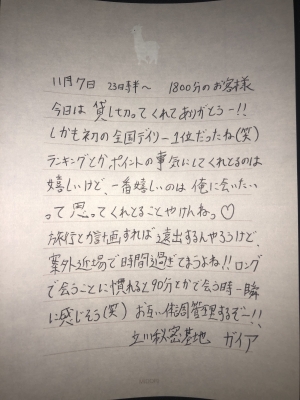 11月7日 23時半〜 1800分のお客様
今日は貸し切ってくれてありがとう-!!
しかも初の全国デイリー1位だったね(笑)
ランキングとかポイントの事気にしてくれとるのは
嬉しいけど、一番嬉しいのは俺に会いたい
って思ってくれとることやけんねっ♡
旅行とか計画すれば遠出するんやろうけど、
案外近場で時間過ぎてまうよね!!ロング
で会うことに慣れると90分とかで会う時一瞬
に感じそう(笑) お互い体調管理するぞー!!
立川秘密基地 ガイア